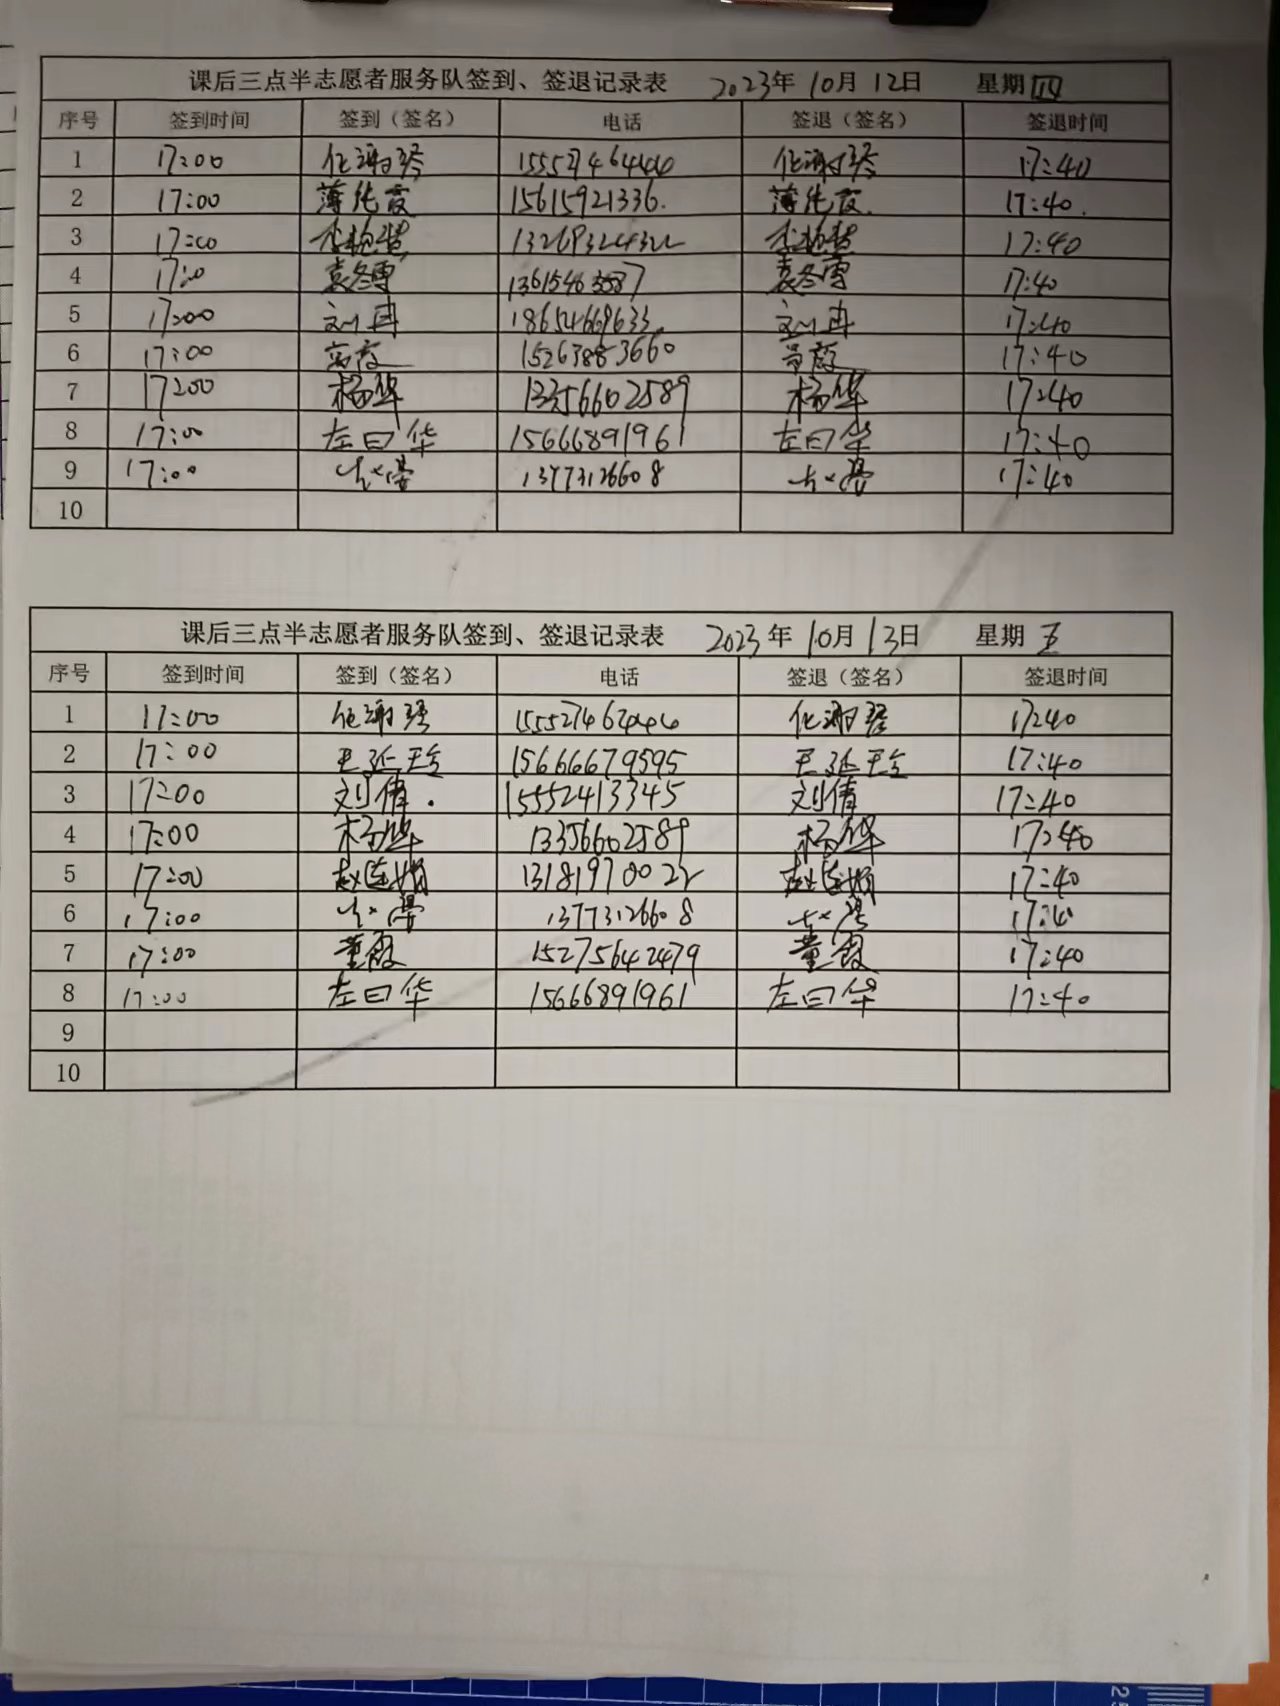 课后三点半志愿者服务队签到、签退记录表 2023年 10月 12日 星期四
序号 签到时间 签到（签名） 电话 签退（签名） 签退时间
1 17:00 15552746444 17:40
2 17:00 薄纯霞 15615921336. 薄纯霞. 17:40.
3 17:00 李艳慧 17:40
4 17:0 袁冬雪 13615463587 袁冬雪 17:40
5 17:00 刘冉 18654669633. 刘冉 17:40
6 17:00 高霞 15263883660 高霞 17:40
7 17:00 杨华 13356602589 杨华 17:40
8 17:00 左曰华 15666891961 左曰华 17:40
9 17:00 13773126608 17:40
10
课后三点半志愿者服务队签到、签退记录表 2023年 10月 13日 星期五
序号 签到时间 签到（签名） 电话 签退（签名） 签退时间
1 17:00 15552746444 17:40
2 17:00 王延玲 15666679595 王延玲 17:40
3 17:00 刘倩. 15552413345 刘倩 17:40
4 17:00 杨华 13356602589 杨华 17:40
5 17:00 赵连娟 13181970022 赵连娟 17:40
6 17:00 13773126608 17:4
7 17:00 董霞 15275642479 董霞 17:40
8 17:00 左曰华 15666891961 左曰华 17:40
9
10